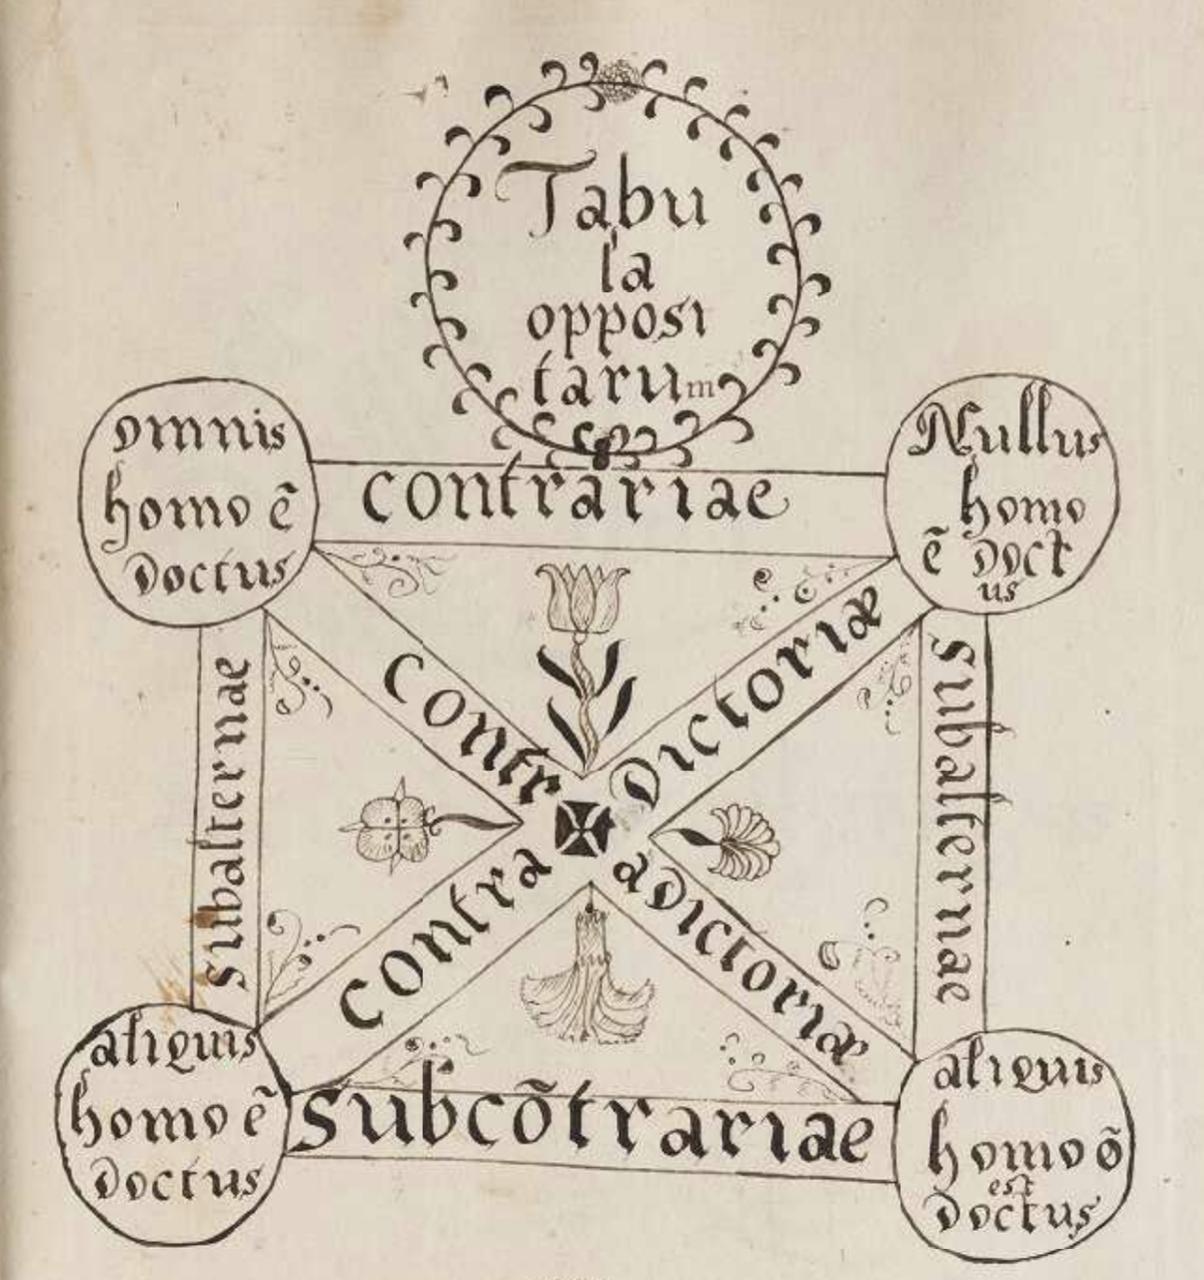 Tabu
la
opposi
tarum
omnis
homo ẽ
doctus
contrariae
Nullus
homo
ẽ doct
us
subalternae
Contr
Dictoriæ
subalternae
Contra
adictoriæ
aliquis
homo ẽ
doctus
subcõtrariae
aliquis
homo õ
est
doctus